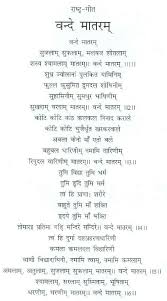 राष्ट्र-गीत
वन्दे मातरम्
वन्दे मातरम्
सुजलाम् सुफलाम्, मलयज शीतलाम्
शस्य श्यामलाम् मातरम्। वन्दे मातरम् ।।1।।
शुभ्र ज्योत्स्नां पुलकित यामिनीम्
फुल्ल कुसुमित द्रुमदल शोभिनीम्
सुहासिनीम् सुमधुर भाषिणीम्
सुखदाम् वरदाम् मातरम्। वन्दे मातरम् ।।2।।
कोटि कोटि कंठ कलकल निनाद कराले
कोटि कोटि भुजैर्धृत खरकरवाले
अबला केनो माँ एतो बले
बहुबल धारिणीम्, नमामि तारिणीम्
रिपुदल वारिणीम् मातरम्। वन्दे मातरम् ।।3।।
तुमि विद्या तुमि धर्म
तुमि हृदि तुमि मर्म
त्वं हि प्राणाः शरीरे
बाहुते तुमि माँ शक्ति
हृदये तुमि माँ भक्ति
तोमारइ प्रतिमा गड़ि मन्दिरे मन्दिरे। वन्दे मातरम् ।।4।।
त्वं हि दुर्गा दशप्रहरणधारिणी
कमला कमलदल विहारिणी
वाणी विद्यादायिनी, त्वाम् नमामि कमलाम्
अमलाम्, अतुलाम्, सुजलाम्, सुफलाम् मातरम्। वन्दे मातरम् ।।5।।
श्यामलाम्, सरलाम्, सुस्मिताम्, भूषिताम्
धरणीम्, भरणीम् मातरम्। वन्दे मातरम् ।।6।।